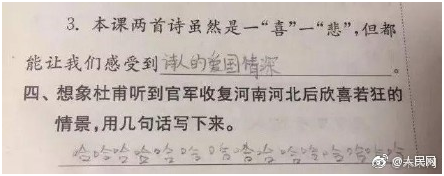 3. 本课两首诗虽然是一“喜”一“悲”,但都
能让我们感受到诗人的爱国情深。
四、想象杜甫听到官军收复河南河北后欣喜若狂的
情景,用几句话写下来。
哈哈哈哈哈哈哈哈哈哈哈哈哈哈哈
@人民网